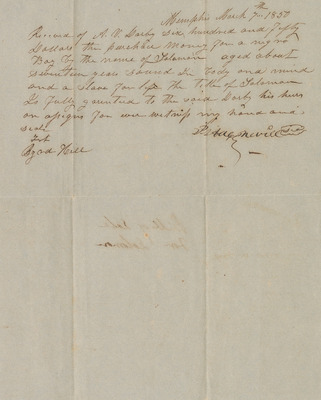 Memphis March 7th 1850
Received of A. V. Darby six hundred and fifty
Dollars the purchase money for a negro
Boy by the name of Solomon aged about
Seventeen years Sound in body and mind
and a Slave for life the title of Solomon
Is fully warented to the said Darby his heirs
or asigns for ever witness my hand and
seal
Test
Byrd Hill